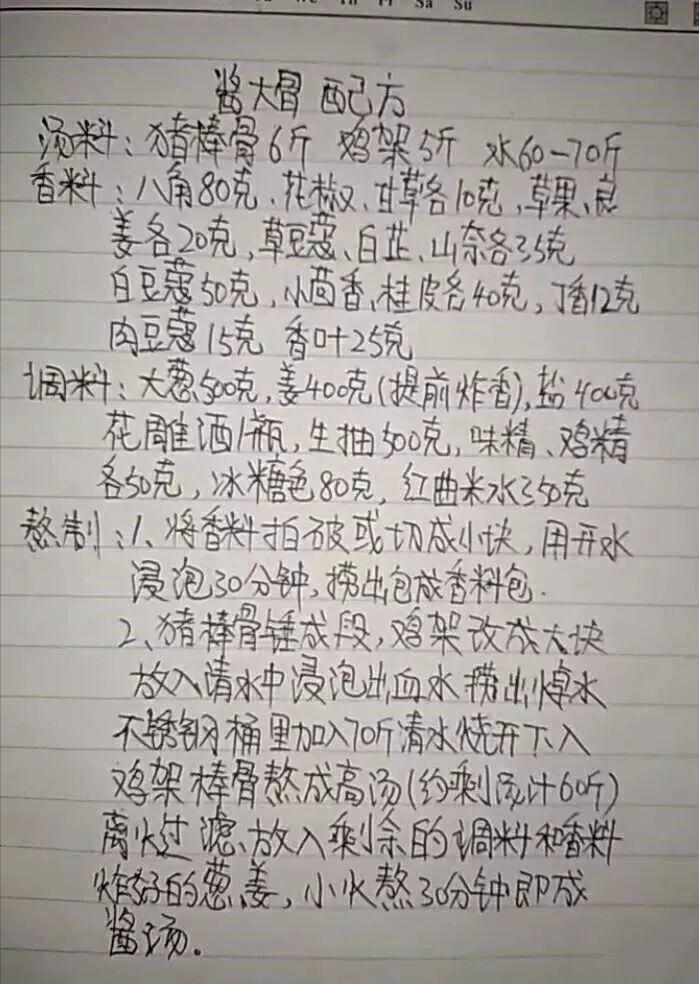 We Th Fr Sa Su
酱大骨 配方
汤料：猪棒骨6斤 鸡架5斤 水60-70斤
香料：八角80克、花椒、甘草各10克，草果、良
姜各20克，草豆蔻、白芷、山奈各35克
白豆蔻50克，小茴香、桂皮各40克，丁香12克
肉豆蔻15克 香叶25克
调料：大葱500克，姜400克(提前炸香)，盐400克
花雕酒1瓶，生抽500克，味精、鸡精
各50克，冰糖色80克，红曲米水350克
熬制：1、将香料拍破或切成小块，用开水
浸泡30分钟，捞出包成香料包.
2、猪棒骨锤成段，鸡架改成大块
放入清水中浸泡出血水 捞出焯水
不锈钢桶里加入70斤清水烧开下入
鸡架棒骨熬成高汤(约剩汤汁60斤)
离火过滤、放入剩余的调料和香料
炸好的葱、姜，小火熬30分钟即成
酱汤。